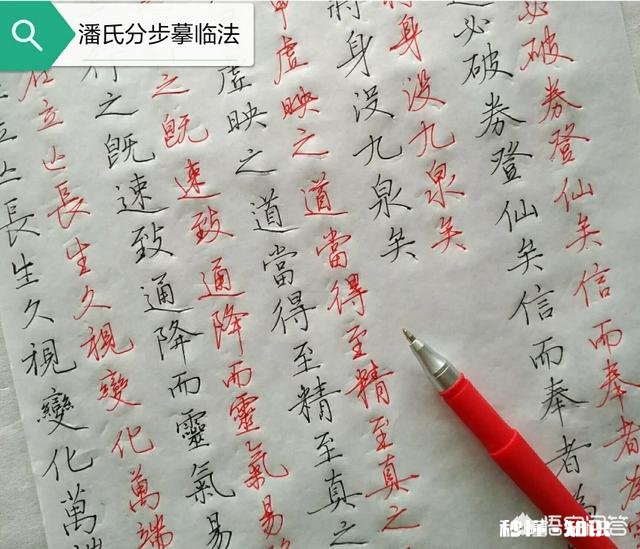 潘氏分步摹临法
必破券登仙矣信而奉者為
必破券登仙矣信而奉者為
將身没九泉矣
將身没九泉矣
甲虛映之道當得至精至真之
虛映之道當得至精至真之
之既速致通降而靈氣易
行之既速致通降而靈氣易
在立亡長生久視變化萬端
立亡長生久視變化萬端
悟空问答